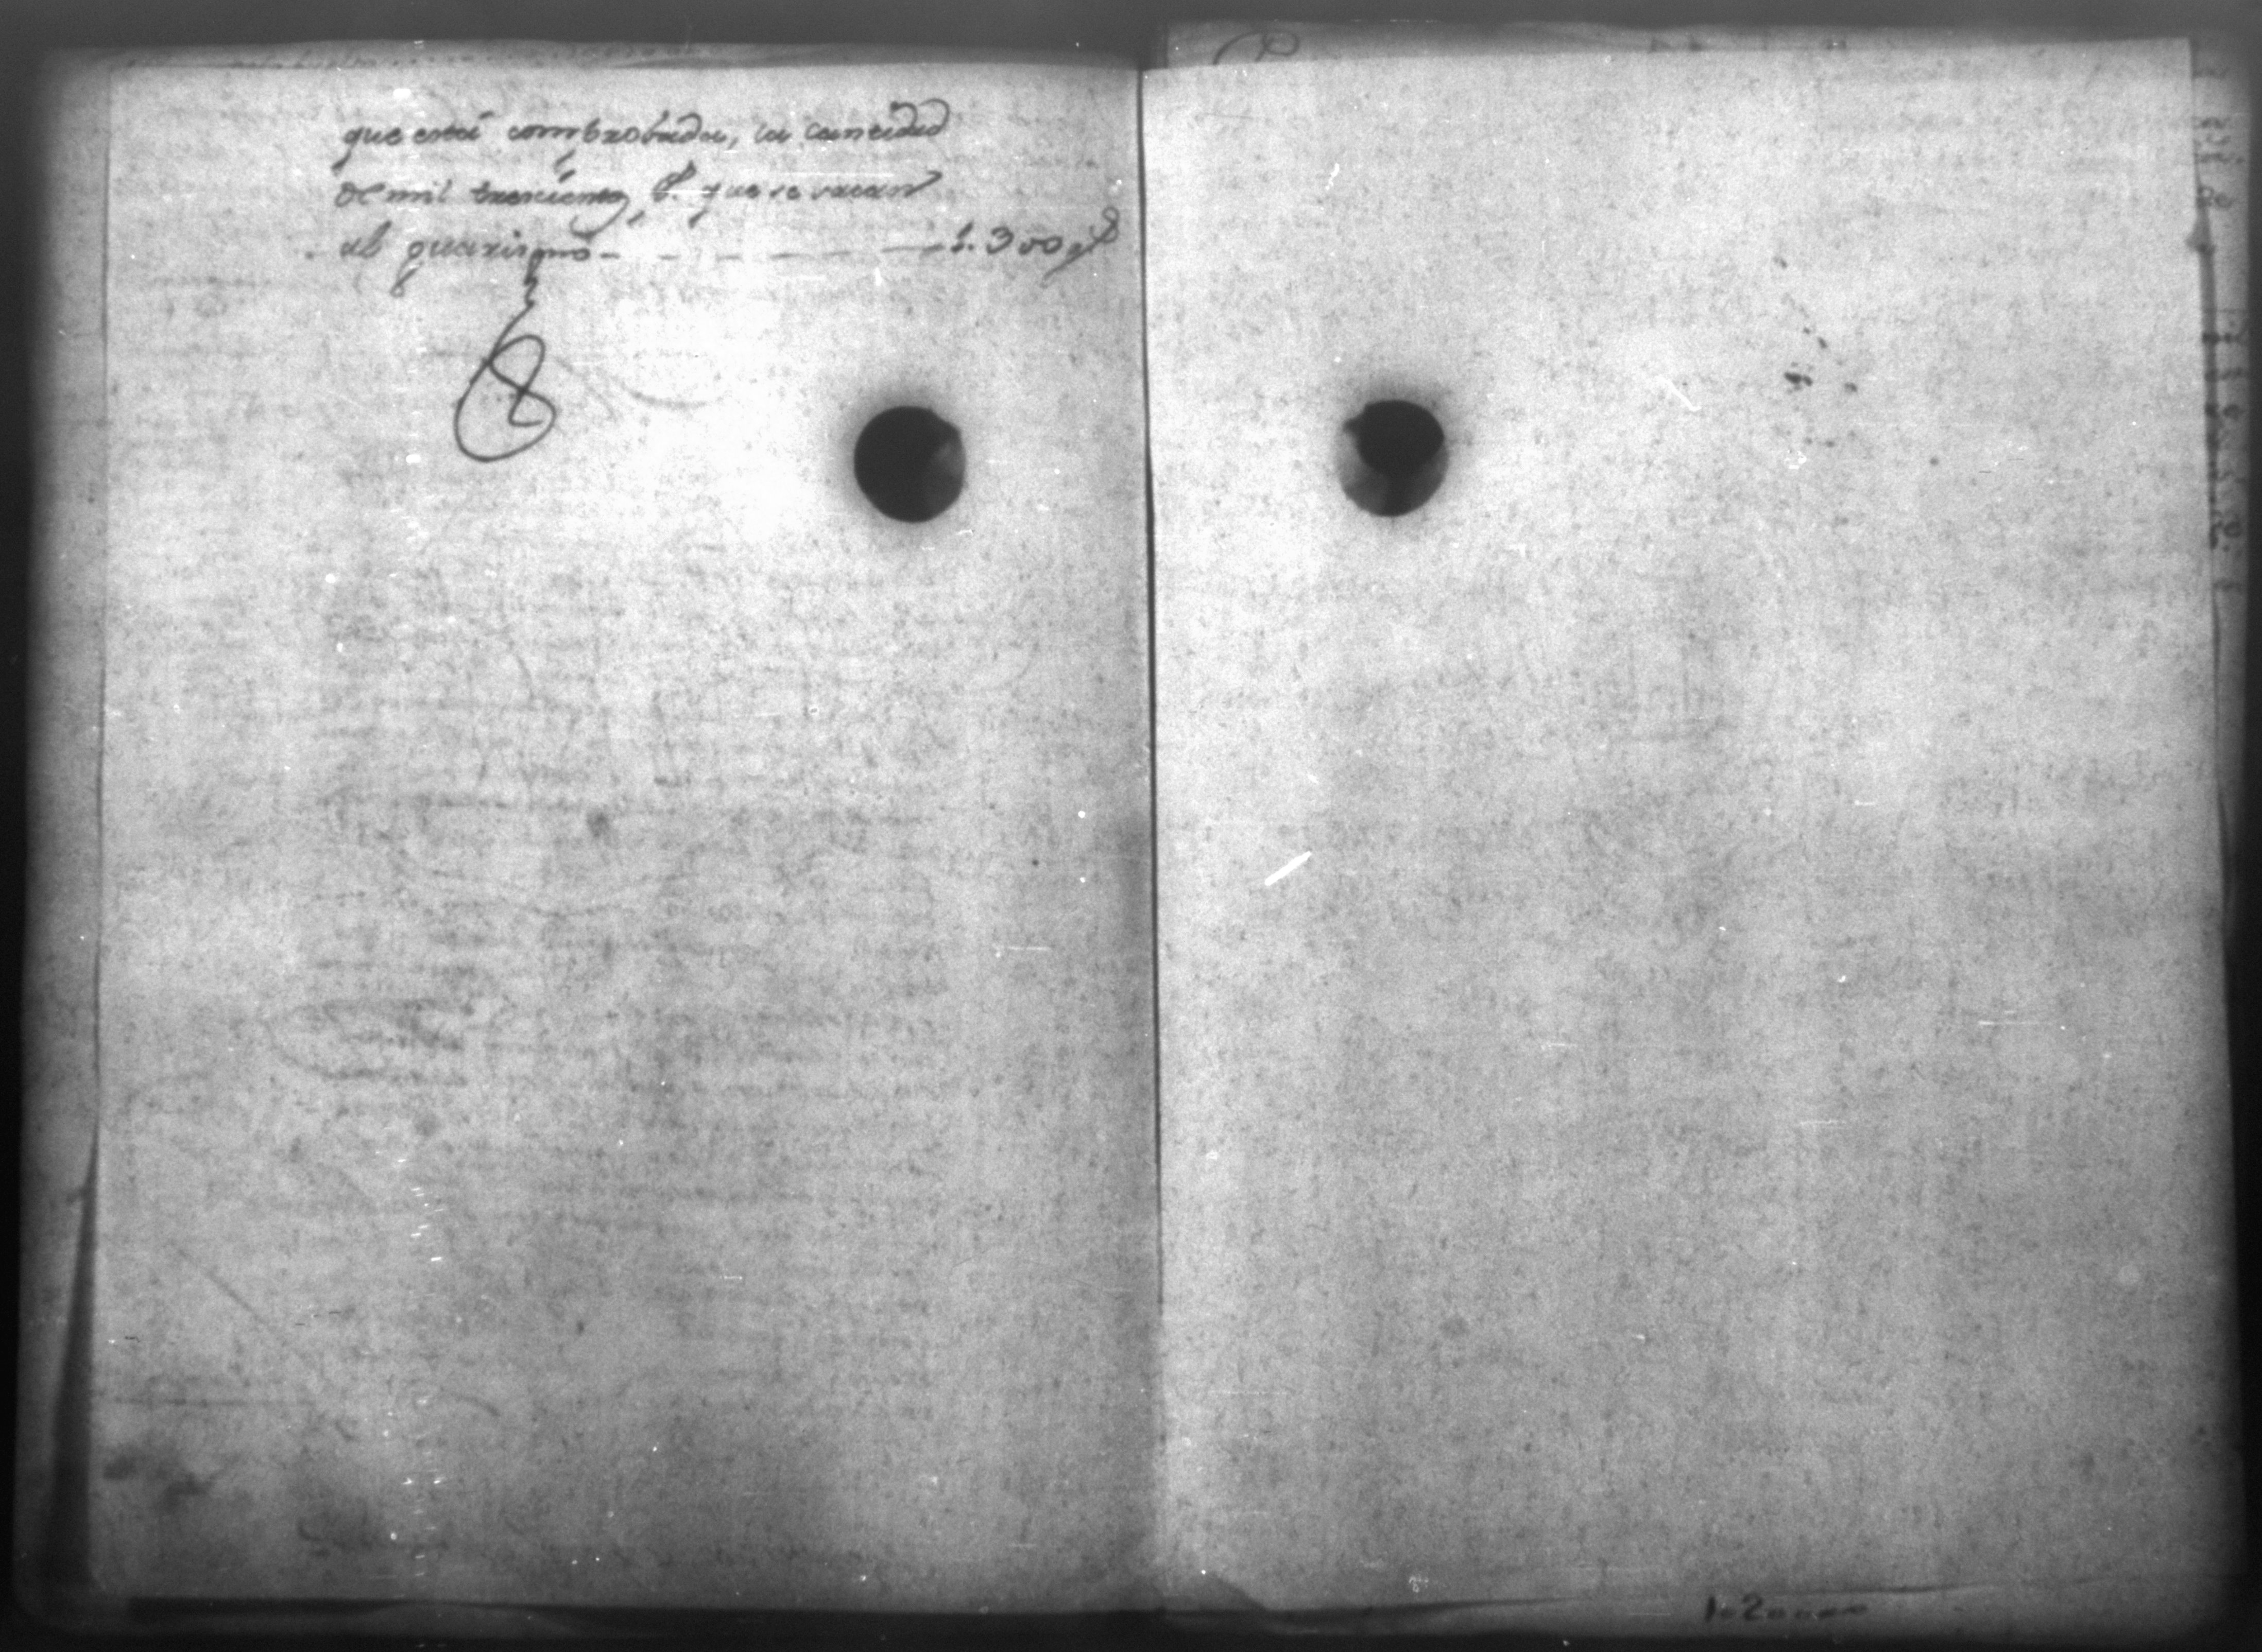 que está comprobada, la cantidad
de mil trescientos p.s que se sacan
al guarismo - - - - 1.300 ps